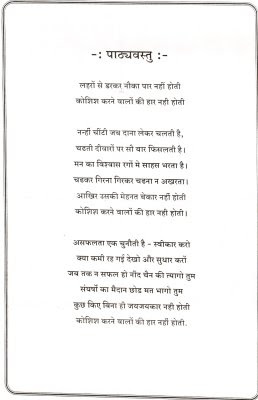 -: पाठ्यवस्तु :-
लहरों से डरकर नौका पार नहीं होती
कोशिश करने वालों की हार नहीं होती
नन्हीं चींटी जब दाना लेकर चलती है,
चढती दीवारों पर सौ बार फिसलती है।
मन का विश्वास रगों मे साहस भरता है।
चढकर गिरना गिरकर चढना न अखरता।
आखिर उसकी मेहनत बेकार नहीं होती
कोशिश करने वालों की हार नहीं होती।
असफलता एक चुनौती है - स्वीकार करो
क्या कमी रह गई देखो और सुधार करों
जब तक न सफल हो नींद चैन की त्यागो तुम
संघर्षो का मैदान छोड मत भागो तुम
कुछ किए बिना ही जयजयकार नही होती
कोशिश करने वालों की हार नहीं होती.